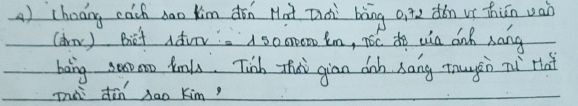 4) Khoảng cách sao Kim đến Mặt Trời bằng 0,72 đơn vị thiên văn
(đvtv) Biết 1đvtv = 150 000 000 km, tốc độ của ánh sáng
bằng 300 000 km/s. Tính thời gian ánh sáng truyền từ Mặt
Trời đến sao Kim ?